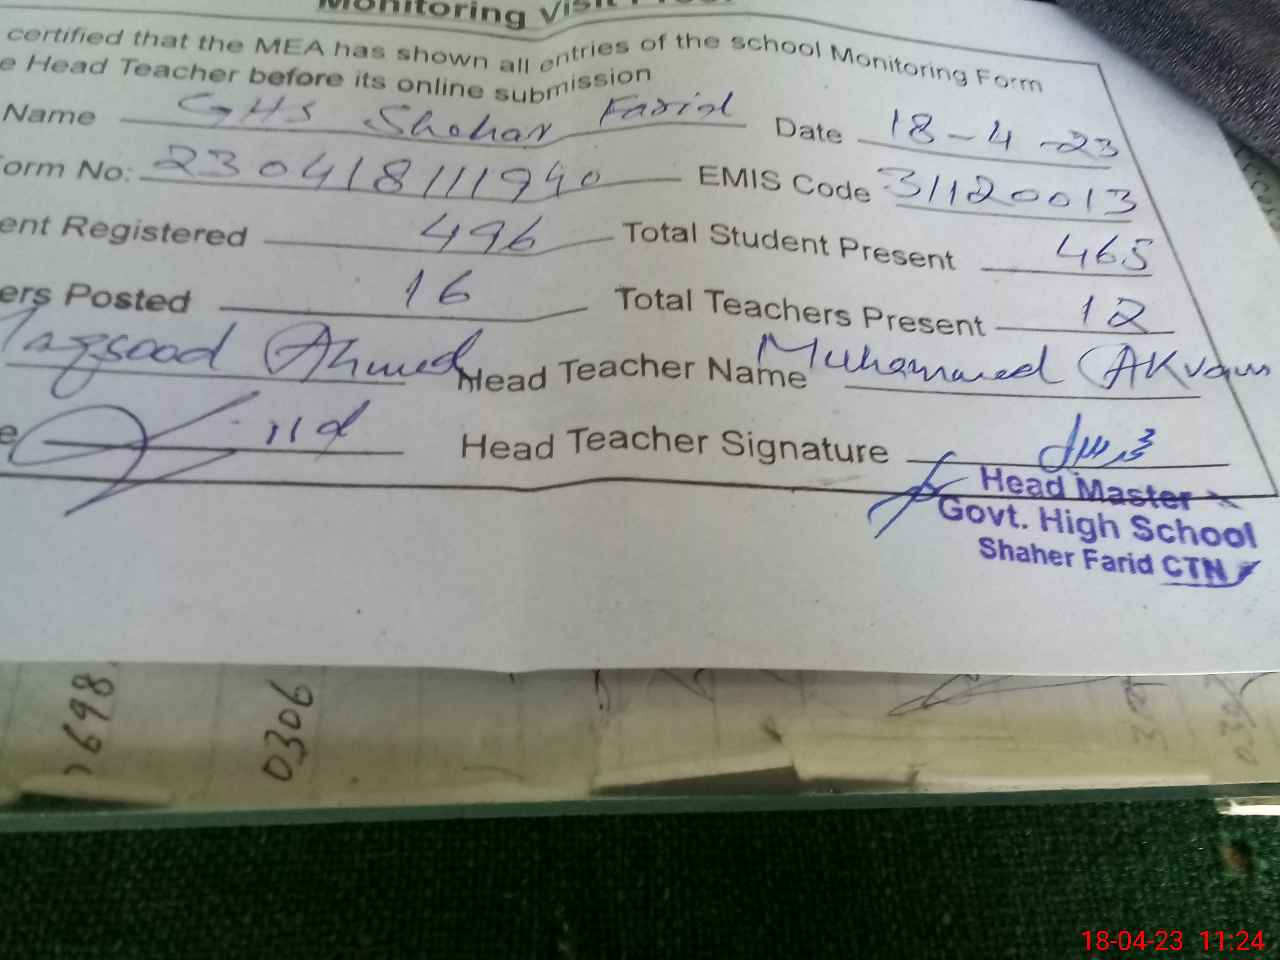 Monitoring Visit
certified that the MEA has shown all entries of the school Monitoring Form
e Head Teacher before its online submission
Name GHS Shahar Farid Date 18-4-23
orm No: 230418111940 EMIS Code 31120013
ent Registered 496 Total Student Present 465
ers Posted 16 Total Teachers Present 12
Maqsood Ahmed Head Teacher Name Muhammed AKram
e Head Teacher Signature
Head Master
Govt. High School
Shaher Farid CTN
1698 0306
18-04-23 11:24